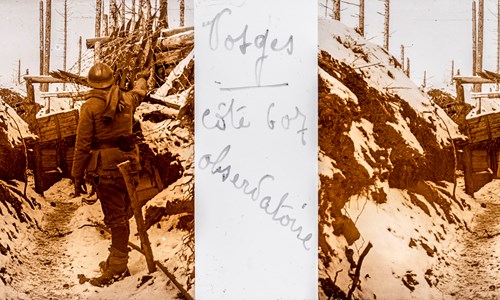 Vosges
côté 607
observatoire